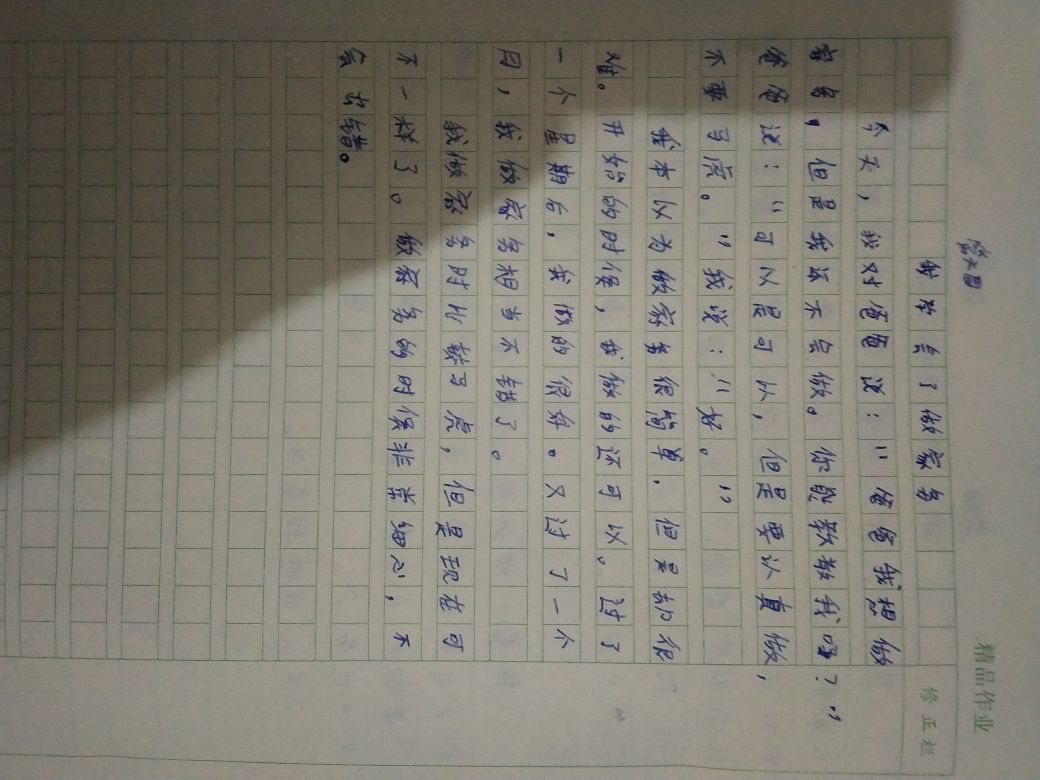 精品作业
修正栏
我学会了做家务
今天，我对爸爸说："爸爸我想做
家务，但是我还不会做。你能教教我吗？"
爸爸说："可以是可以，但是要认真做，
不要马虎。"我说："好。"
我本以为做家务很简单，但是却很
难。开始的时候，我做的还可以。过了
一个星期后，我做的很好。又过了一个
月，我做家务相当不错了。
我做家务时比较马虎，但是现在可
不一样了。做家务的时候非常细心，不
会出错。